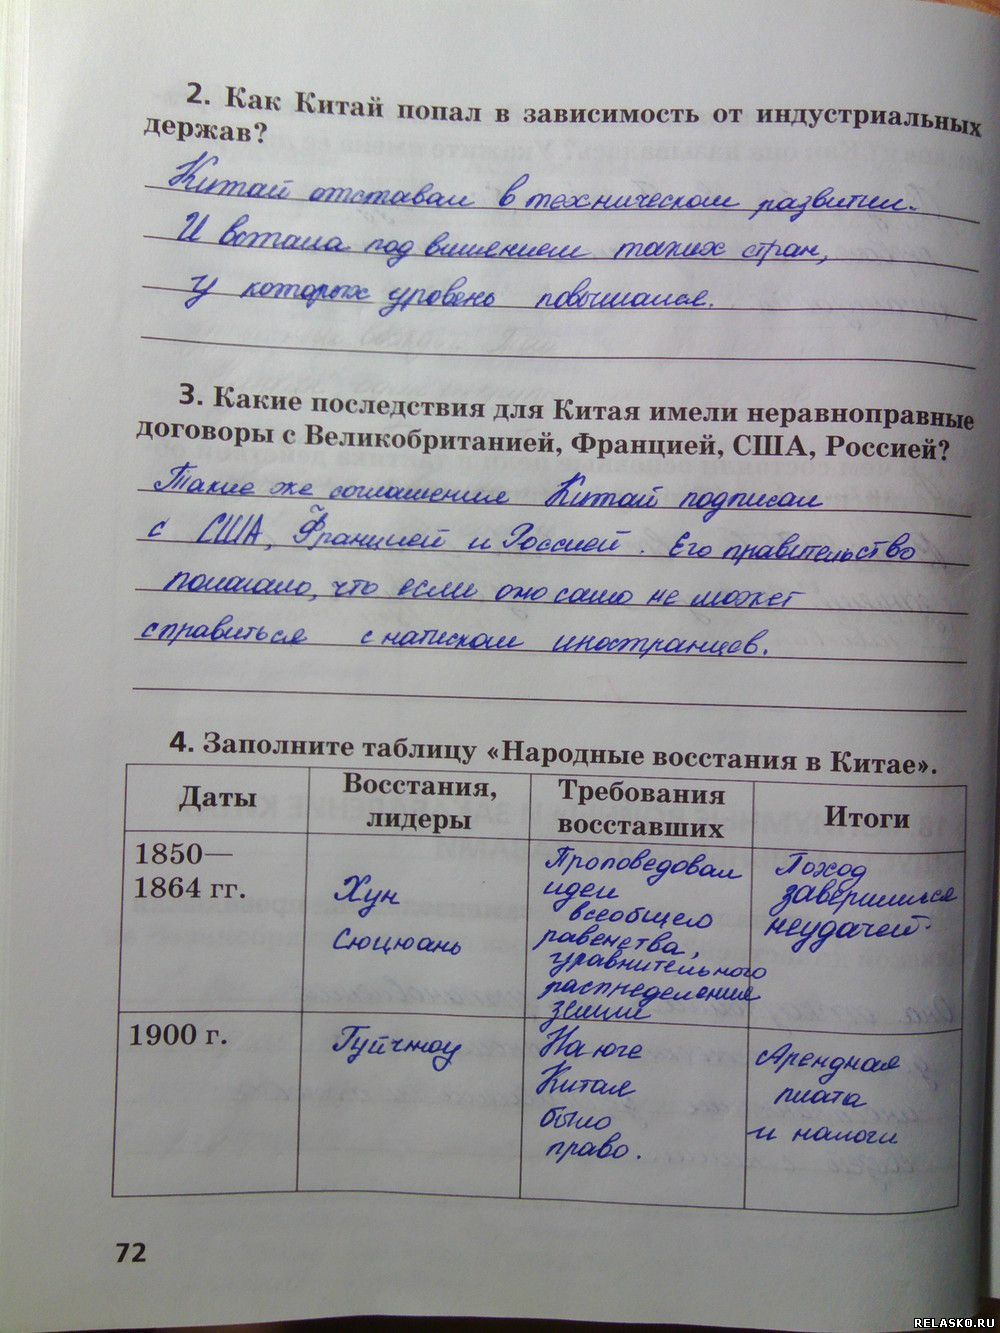 2. Как Китай попал в зависимость от индустриальных
держав?
Китай отставал в техническом развитии.
И встала под влиянием таких стран,
у которых уровень повышался.
3. Какие последствия для Китая имели неравноправные
договоры с Великобританией, Францией, США, Россией?
Такие же соглашения Китай подписал
с США, Францией и Россией. Его правительство
полагало, что если оно само не может
справиться с натиском иностранцев.
4. Заполните таблицу «Народные восстания в Китае».
Даты
Восстания,
лидеры
Требования
восставших
Итоги
1850—
1864 гг.
Хун
Сюцюань
Проповедовал
идеи
всеобщего
равенства,
уравнительного
распределения
земли
Поход
завершился
неудачей.
1900 г.
Гуйчжоу
На юге
Китая
было
право.
Арендная
плата
и налоги
72
RELASKO.RU